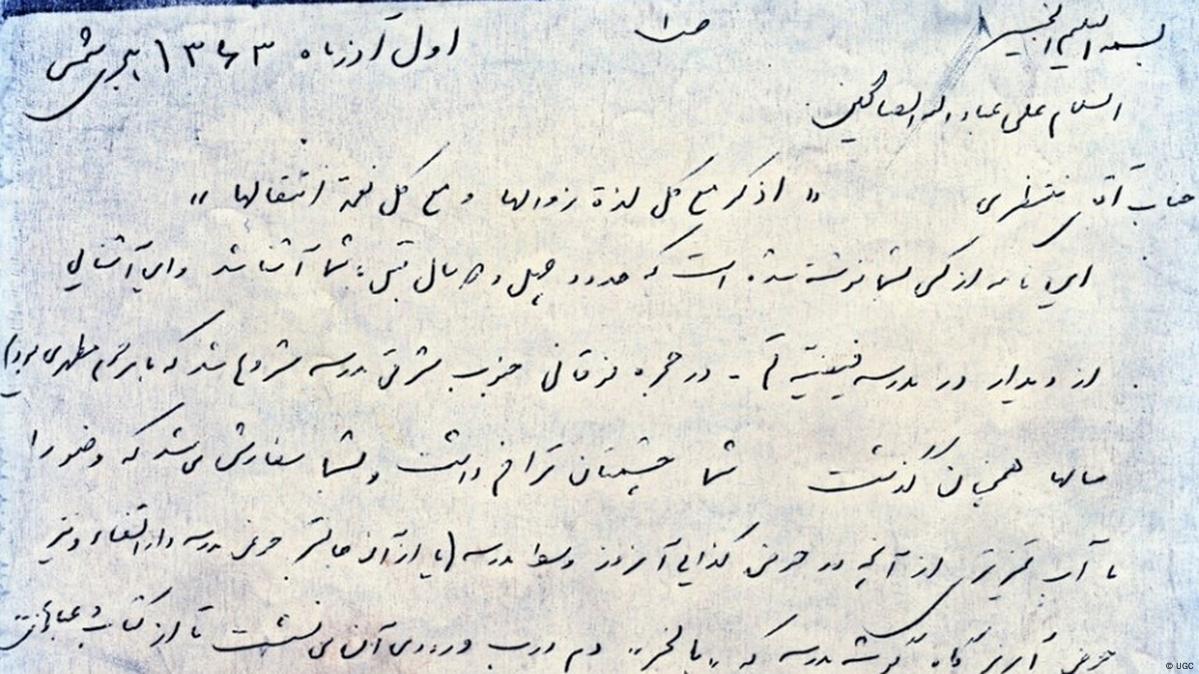 بسمه العلیم الخبیر
ص ۱
اول آذرماه ۱۳۶۳ هجری شمسی
السلام علی عباد الله الصالحین
جناب آقای منتظری « اذکر مع کل لذة زوالها و مع کل نعمة انتقالها »
این نامه از کسی بشما نوشته شده است که حدود چهل و سال قبل با شما آشنا شد و این آشنائی
از دیدار در مدرسه فیضیه قم - در حجره فوقانی جنوب شرقی مدرسه شروع شد که با مرحوم مطهری بودید)
سالها همچنان گذشت شما چشمتان تراخم داشت و بشما سفارش می‌شد که وضو را
با آب تمیزتر از آنچه در حوض کذایی آنروز وسط مدرسه (یا از آن جالبتر حوض مدرسه دارالشفاء و نیز
حوض گوشه مدرسه که دم درب ورودی آن می نشست تا از کتاب
© UGC